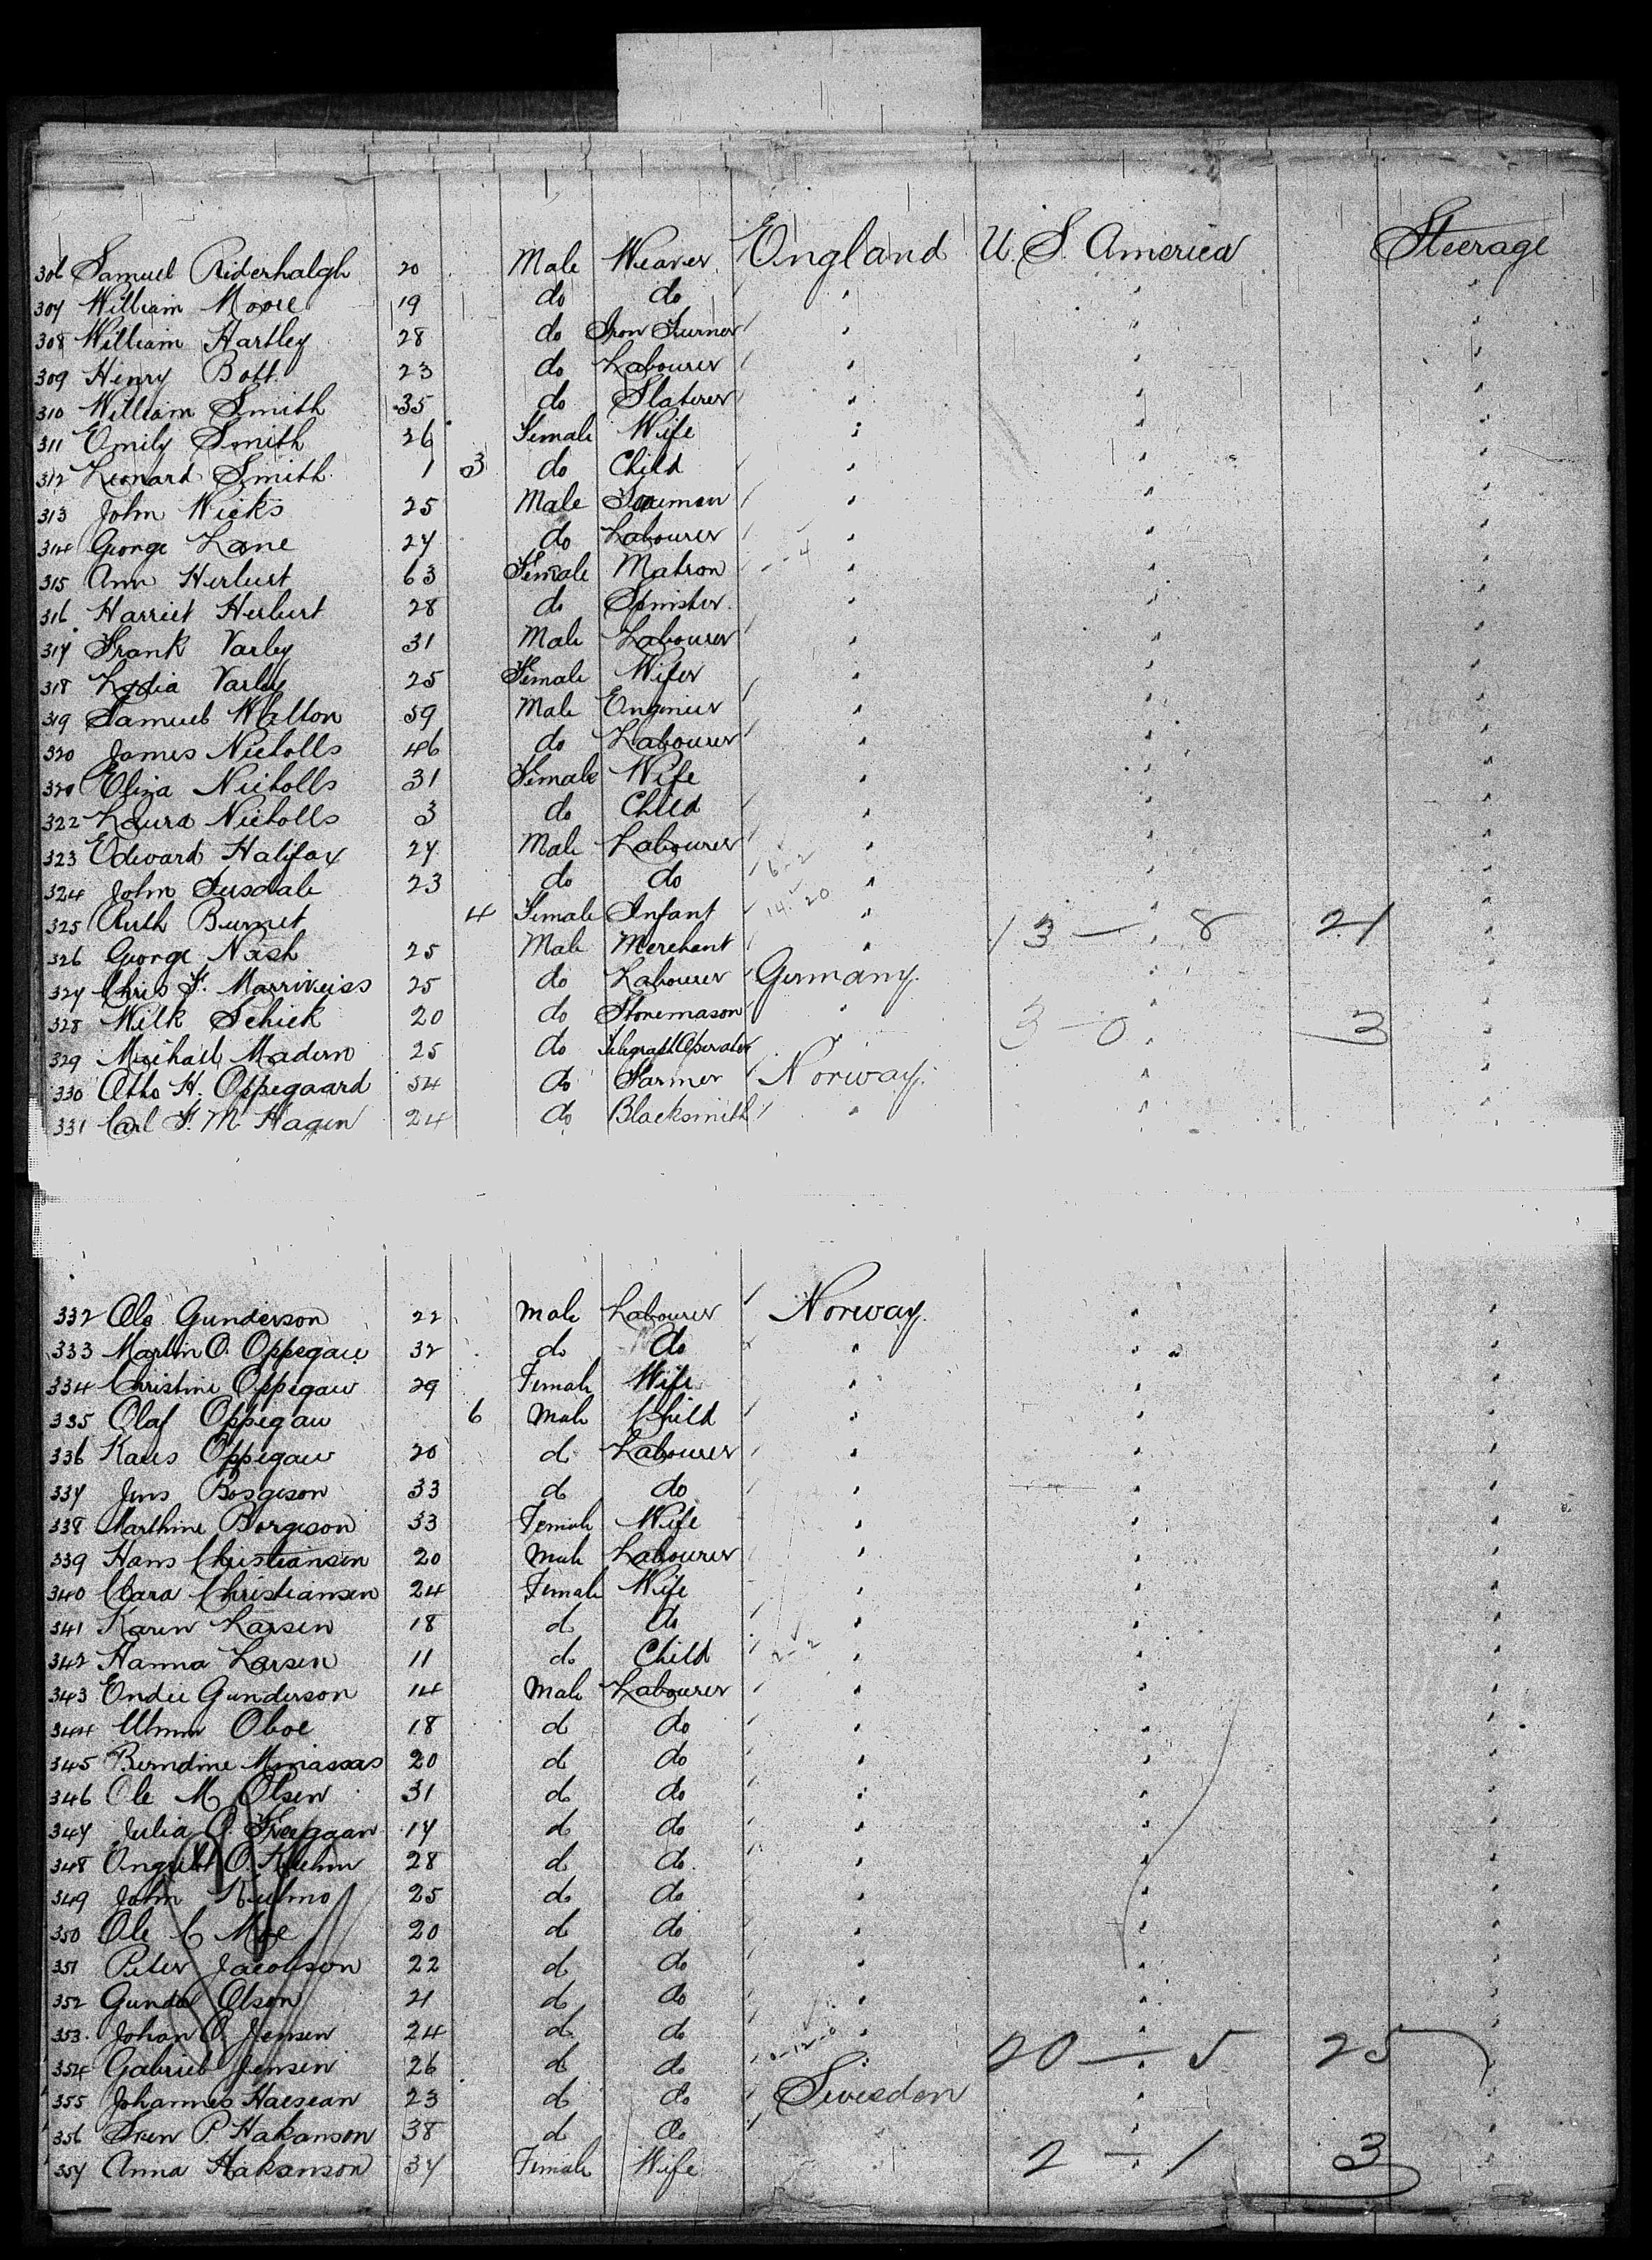 306 Samuel Riderhalgh 20 Male Weaver England U. S. America Steerage
307 William Moore 19 do do " " "
308 William Hartley 28 do Iron Turner " " "
309 Henry Bott 23 do Labourer " " "
310 William Smith 35 do Slaterer " " "
311 Emily Smith 26 Female Wife " " "
312 Leonard Smith 1 3 do Child " " "
313 John Wicks 25 Male " " "
314 George Lane 27 do Labourer " " "
315 Ann Herbert 63 Female Matron " " "
316 Harriet Herbert 28 do Spinster " " "
317 Frank Varley 31 Male Labourer " " "
318 Lydia Varley 25 Female Wife " " "
319 Samuel Walton 59 Male Engineer " " "
320 James Nicholls 46 do Labourer " " "
321 Eliza Nicholls 31 Female Wife " " "
322 Laura Nicholls 3 do Child " " "
323 Edward Halifax 27 Male Labourer " " "
324 John Tusdale 23 do do " " "
325 Ruth Burnet 4 Female Infant " " "
326 George Nash 25 Male Merchant " 13 — 8 21 "
327 Chris F. 25 do Labourer Germany " "
328 Wilk Schick 20 do Stonemason " " "
329 Michael Madern 25 do Telegraph Operator " 3 — 0 3 "
330 Otto H. Oppegaard 34 do Farmer Norway " "
331 Carl F. M. Hagen 24 do Blacksmith " " "
332 Ole Gunderson 22 Male Labourer Norway " "
333 Martin O. Oppegau 32 do do " " "
334 Christine Oppegau 29 Female Wife " " "
335 Olaf Oppegau 6 Male Child " " "
336 Oppegau 20 d Labourer " " "
337 Jens Borgeson 33 d do " " "
338 Marthine Borgeson 33 Female Wife " " "
339 Hans Christiansen 20 Male Labourer " " "
340 Clara Christiansen 24 Female Wife " " "
341 Karen Larsen 18 d do " " "
342 Hanna Larsen 11 do Child " " "
343 Gunderson 14 Male Labourer " " "
344 Oboe 18 d do " " "
345 Berndine 20 d do " " "
346 Ole M. Olsen 31 d do " " "
347 Julia O. 17 d do " " "
348 O. 28 d do " " "
349 John 25 d do " " "
350 Ole C Moe 20 d do " " "
351 Peter Jacobson 22 d do " " "
352 Olson 21 d do " " "
353 Johan O. Jensen 24 d do " " "
354 Gabriel Jensen 26 d do " 20 — 5 25 "
355 Johannes 23 d do Sweden " "
356 P. Hakanson 38 d do " "
357 Anna Hakanson 37 Female Wife 2 — 1 3 "